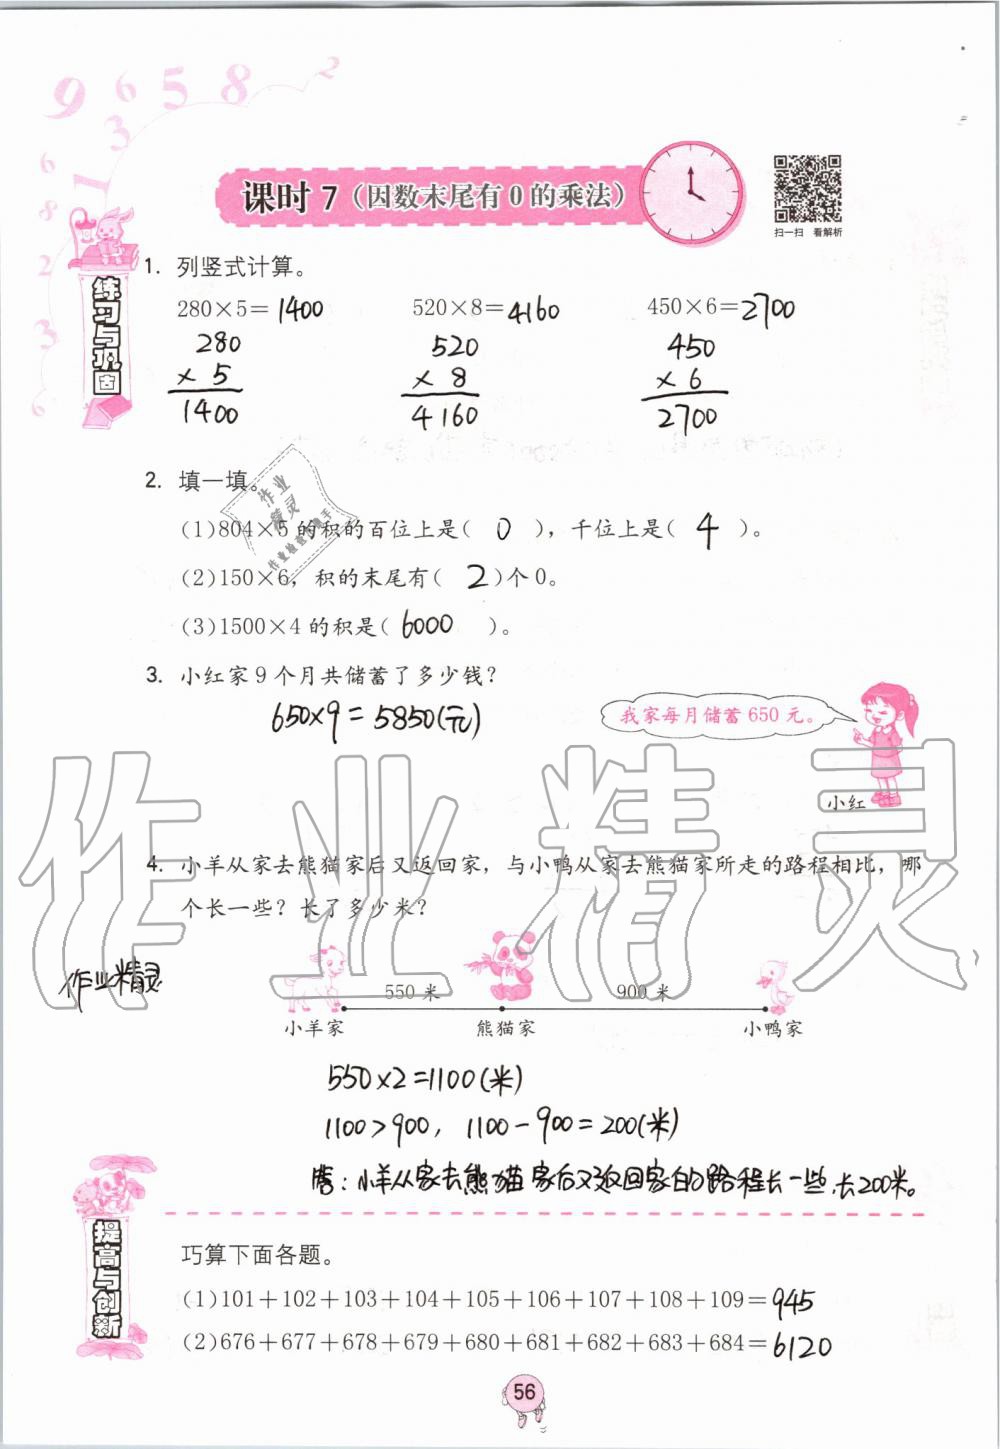 9 6 5 8 2
3
1
6
8
2
3
6
课时 7（因数末尾有 0 的乘法）
扫一扫 看解析
练习与巩固
1. 列竖式计算。
280×5=1400 520×8=4160 450×6=2700
280 520 450
× 5 × 8 × 6
1400 4160 2700
2. 填一填。
(1)804×5 的积的百位上是( 0 )，千位上是( 4 )。
(2)150×6，积的末尾有( 2 )个 0。
(3)1500×4 的积是( 6000 )。
作业精灵
作业检查小助手
3. 小红家 9 个月共储蓄了多少钱？
650×9=5850(元)
我家每月储蓄 650 元。
小红
作业精灵
4. 小羊从家去熊猫家后又返回家，与小鸭从家去熊猫家所走的路程相比，哪
个长一些？长了多少米？
作业精灵
550 米 900 米
小羊家 熊猫家 小鸭家
550×2=1100(米)
1100>900，1100-900=200(米)
答：小羊从家去熊猫家后又返回家的路程长一些，长200米。
提高与创新
巧算下面各题。
(1)101+102+103+104+105+106+107+108+109=945
(2)676+677+678+679+680+681+682+683+684=6120
56